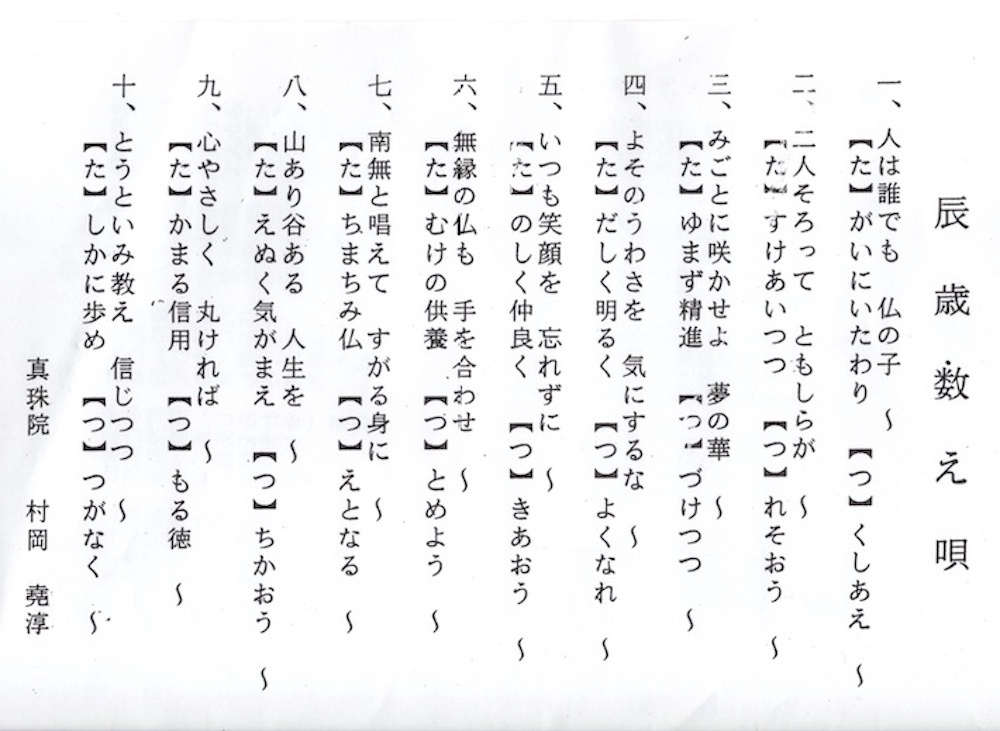 辰歳数え唄
一、人は誰でも 仏の子 ～
【た】がいにいたわり 【つ】くしあえ ～
二、二人そろって ともしらが ～
【た】すけあいつつ 【つ】れそおう ～
三、みごとに咲かせよ 夢の華 ～
【た】ゆまず精進 【つ】づけつつ ～
四、よそのうわさを 気にするな ～
【た】だしく明るく 【つ】よくなれ ～
五、いつも笑顔を 忘れずに ～
【た】のしく仲良く 【つ】きあおう ～
六、無縁の仏も 手を合わせ ～
【た】むけの供養 【つ】とめよう ～
七、南無と唱えて すがる身に ～
【た】ちまちみ仏 【つ】えとなる ～
八、山あり谷ある 人生を ～
【た】えぬく気がまえ 【つ】ちかおう ～
九、心やさしく 丸ければ ～
【た】かまる信用 【つ】もる徳 ～
十、とうといみ教え 信じつつ ～
【た】しかに歩め 【つ】つがなく ～
真珠院 村岡 堯淳